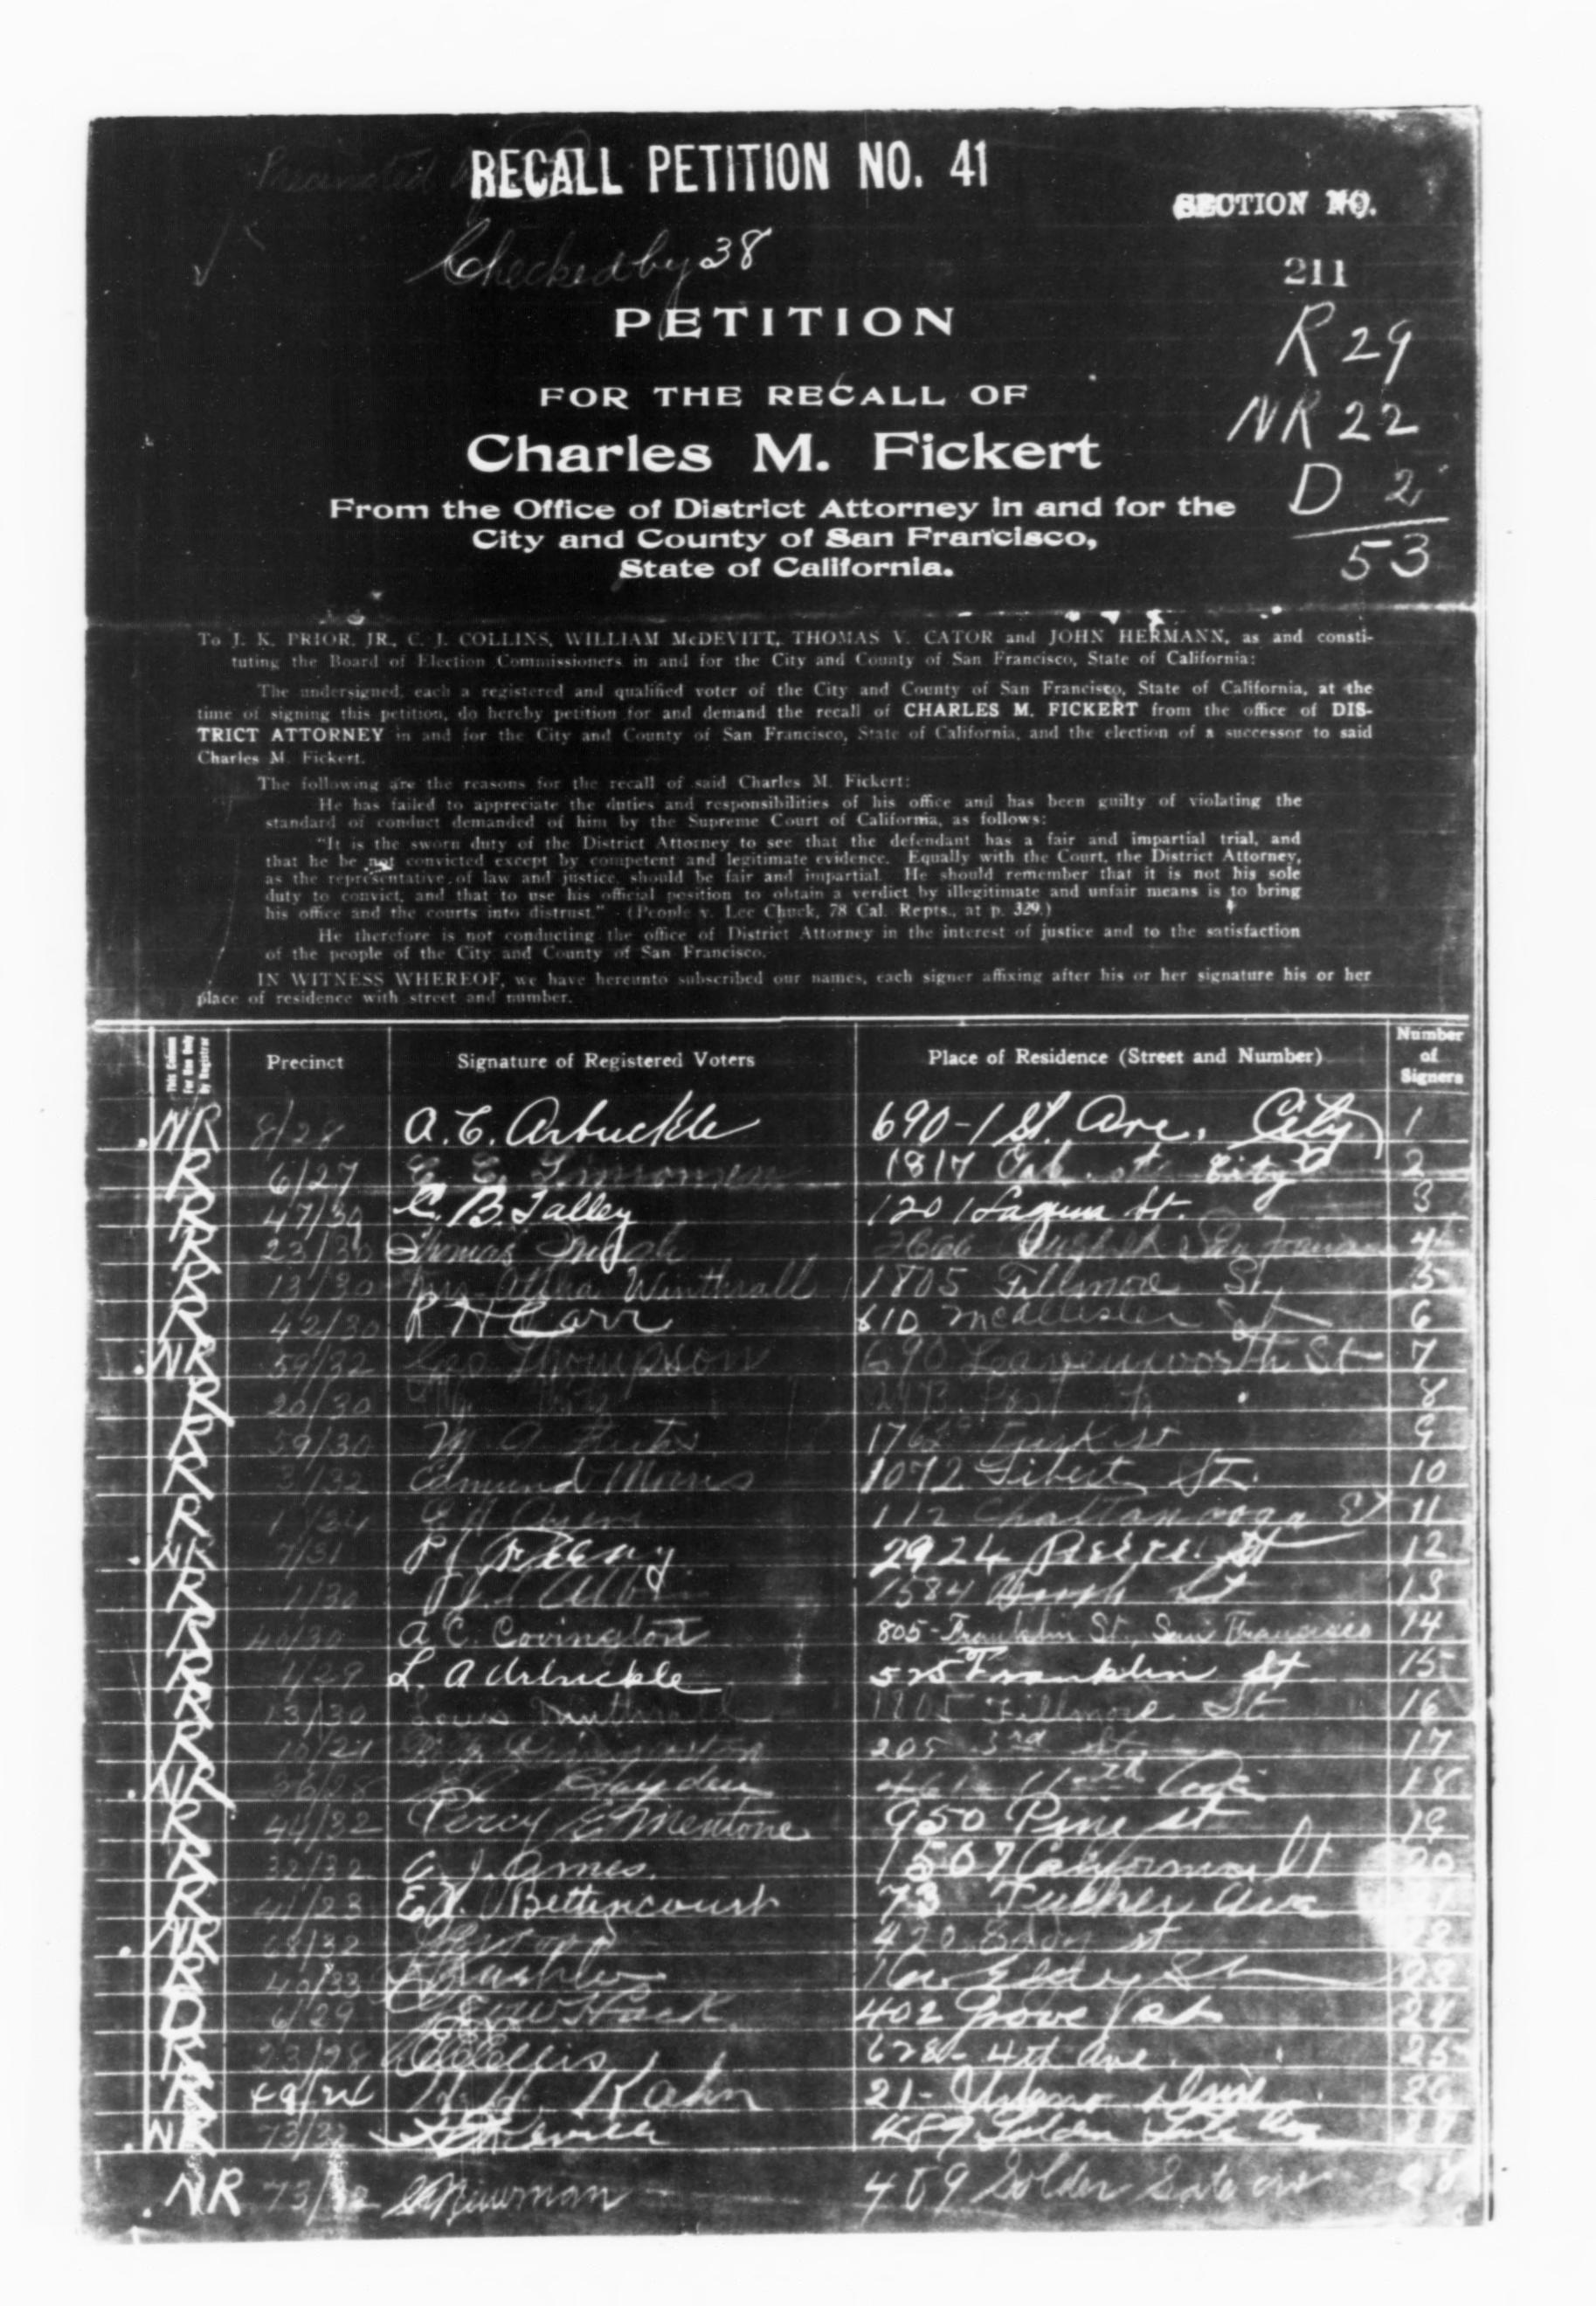 Precincted
RECALL PETITION NO. 41
SECTION NO.
Checked by 38
211
PETITION
R 29
FOR THE RECALL OF
NR 22
Charles M. Fickert
D 2
From the Office of District Attorney in and for the
City and County of San Francisco,
53
State of California.
To J. K. PRIOR, JR., C. J. COLLINS, WILLIAM McDEVITT, THOMAS V. CATOR and JOHN HERMANN, as and consti-
tuting the Board of Election Commissioners in and for the City and County of San Francisco, State of California:
The undersigned, each a registered and qualified voter of the City and County of San Francisco, State of California, at the
time of signing this petition, do hereby petition for and demand the recall of CHARLES M. FICKERT from the office of DIS-
TRICT ATTORNEY in and for the City and County of San Francisco, State of California, and the election of a successor to said
Charles M. Fickert.
The following are the reasons for the recall of said Charles M. Fickert:
He has failed to appreciate the duties and responsibilities of his office and has been guilty of violating the
standard of conduct demanded of him by the Supreme Court of California, as follows:
"It is the sworn duty of the District Attorney to see that the defendant has a fair and impartial trial, and
that he be not convicted except by competent and legitimate evidence. Equally with the Court, the District Attorney,
as the representative of law and justice, should be fair and impartial. He should remember that it is not his sole
duty to convict, and that to use his official position to obtain a verdict by illegitimate and unfair means is to bring
his office and the courts into distrust." (People v. Lee Chuck, 78 Cal. Repts., at p. 329.)
He therefore is not conducting the office of District Attorney in the interest of justice and to the satisfaction
of the people of the City and County of San Francisco.
IN WITNESS WHEREOF, we have hereunto subscribed our names, each signer affixing after his or her signature his or her
place of residence with street and number.
This Column For Use Only by Registrar Precinct Signature of Registered Voters Place of Residence (Street and Number) Number of Signers
NR 8/28 A. C. Arbuckle 690-1 St. Ave. City 1
R 6/27 E. E. 1817 Oak st City 2
R 47/30 C. B. Talley 1201 Laguna St. 3
R 23/30 Thomas 4
R 13/30 Mrs. Winthrall 1805 Fillmore St. 5
R 42/30 R H Carr 610 McAllister St 6
NR 59/32 Geo Thompson 690 Leavenworth St 7
R 20/30 Post 8
R 59/30 M. A. Turk st 9
R 3/32 Edmund Morris 1072 Filbert St. 10
R 1/34 E H Ayers 112 Chattanooga St 11
NR 7/31 P J Feeny 2924 Pierce St 12
R 1/30 1584 St 13
R 40/30 A C. Covington 805-Franklin St., San Francisco 14
R 4/29 L. A Arbuckle 525 Franklin St 15
R 13/30 Louis 1805 Fillmore St 16
R 10/24 205 3rd St 17
NR 36/28 Hayden 461 11th Ave 18
R 44/32 Percy E Mentone 950 Pine st 19
R 32/32 A. J. Ames. 1507 California St 20
R 41/23 E. Bettencourt 73 Ave 21
NR 68/32 420 Eddy st 22
R 40/33 Eddy St 23
D 6/29 Hack 402 Grove st 24
R 23/28 Ellis 628- 4th Ave. 25
R 49/24 H. H. Kahn 21- Urbano Drive 26
NR 73/32 489 Golden Gate Ave 27
NR 73/32 Newman 409 Golden Gate ave 28